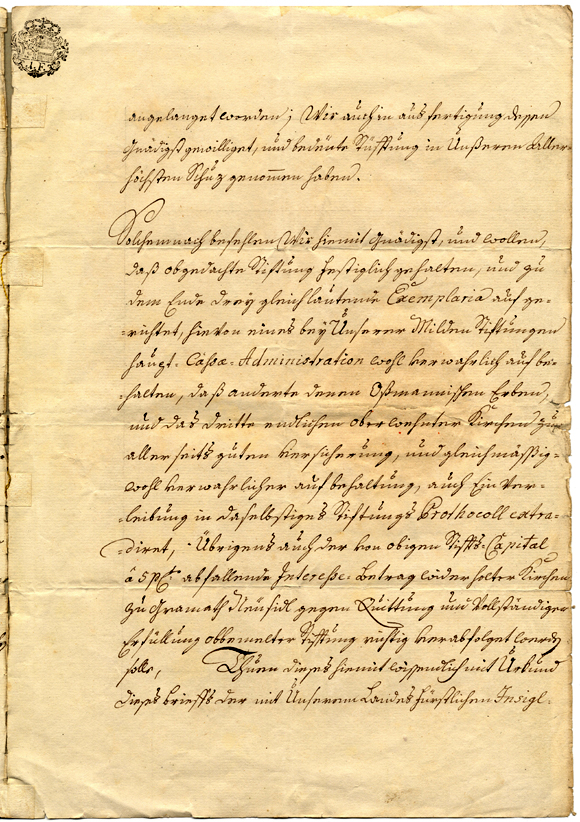 angelanget worden; Wir auch in ausfertigung dessen
Gnädigst gewilliget, und bedeute Stüfftung in Unßeren Aller-
höchsten Schuz genommen haben.
Solchemnach befehlen Wir hiemit Gnädigst, und wollen,
daß obgedachte Stifftung festiglich gehalten, und zu
dem Ende drey gleichlautende Exemplaria auf ge-
richtet, hievon eines bey Unserer Milden Stifftungen
haupt-Cassæ-Administration wohl verwahrlich auf be-
halten, daß anderte denen Oßmannischen Erben,
und das dritte endlichen oberwehnter Kirchen zu
allerseits guten Versicherung, und gleichmässig-
wohl verwahrlicher aufbehaltung, auch Ein Ver-
leibung in daselbstiges Stifftungs Prothocoll extra-
diret, Übrigens auch der von obigen Stiffts-Capital
â 5 pCt. abfallende Interesse-Betrag widerholter Kirchen
zu Gramath Neüsidl gegen Quittung und Vollständiger
Erfüllung obbemelter Stifftung richtig verabfolget werde
solle, Thuen dieses hiemit wissendlich mit Urkund
dieses brieffs der mit Unserem Landesfürstlichen Insigl-